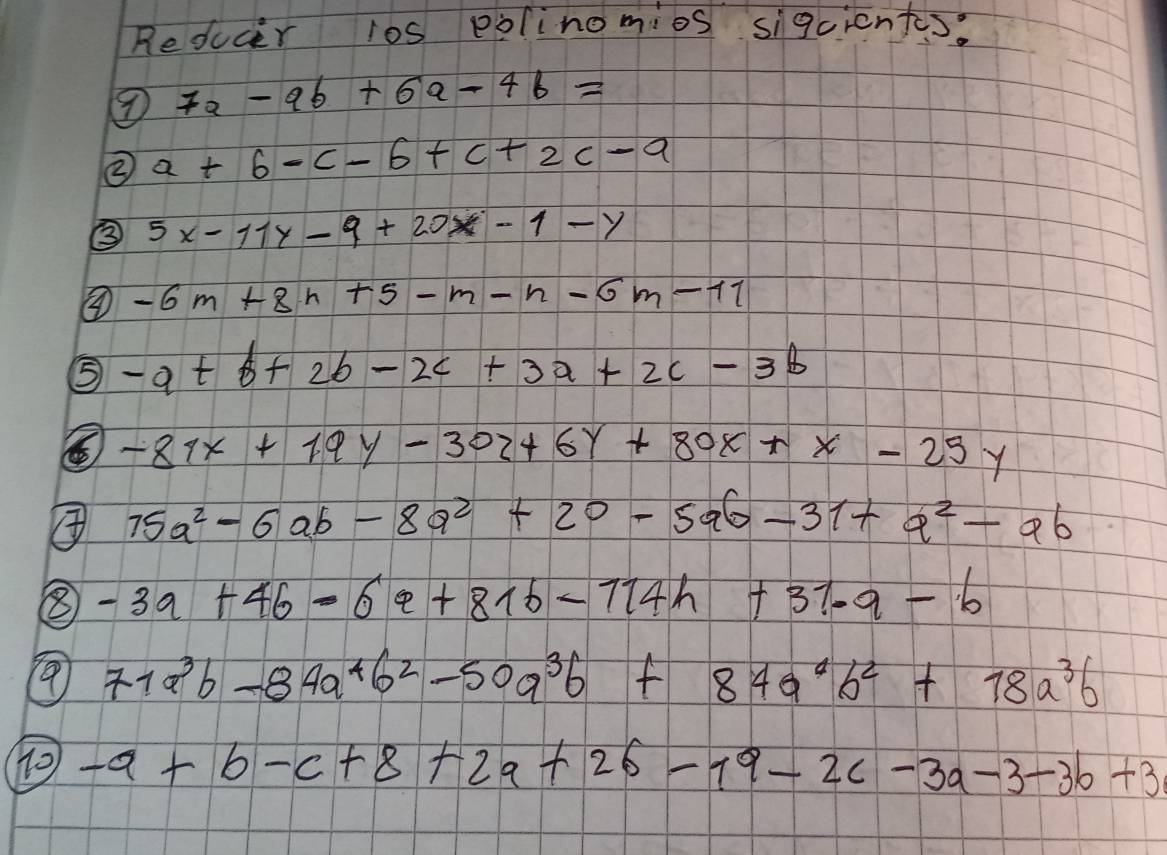 Reducir los polinomios siguientes:
① 7a - 9b + 6a - 4b =
② a + b - c - b + c + 2c - a
③ 5x - 11y - 9 + 20x - 1 - y
④ -6m + 8n + 5 - m - n - 6m - 11
⑤ -a + b + 2b - 2c + 3a + 2c - 3b
⑥ -81x + 19y - 30z + 6y + 80x + x - 25y
⑦ 15a² - 6ab - 8a² + 20 - 5ab - 31 + a² - ab
⑧ -3a + 4b - 6a + 81b - 114b + 31 - a - b
⑨ 71a³b - 84a⁴b² - 50a³b + 84a⁴b² + 18a³b
⑩ -a + b - c + 8 + 2a + 2b - 19 - 2c - 3a - 3 - 3b + 3